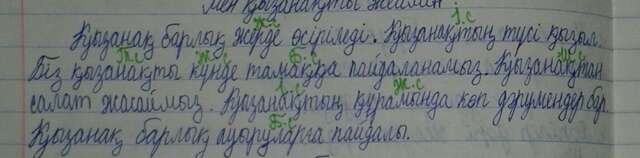 Мен қызанақты жеймін
Қызанақ барлық жерде өсіріледі. Қызанақтың түсі қызыл.
Біз қызанақты күнде тамаққа пайдаланамыз. Қызанақтан
салат жасаймыз. Қызанақтың құрамында көп дәрумендер бар.
Қызанақ барлық ауруларға пайдалы.